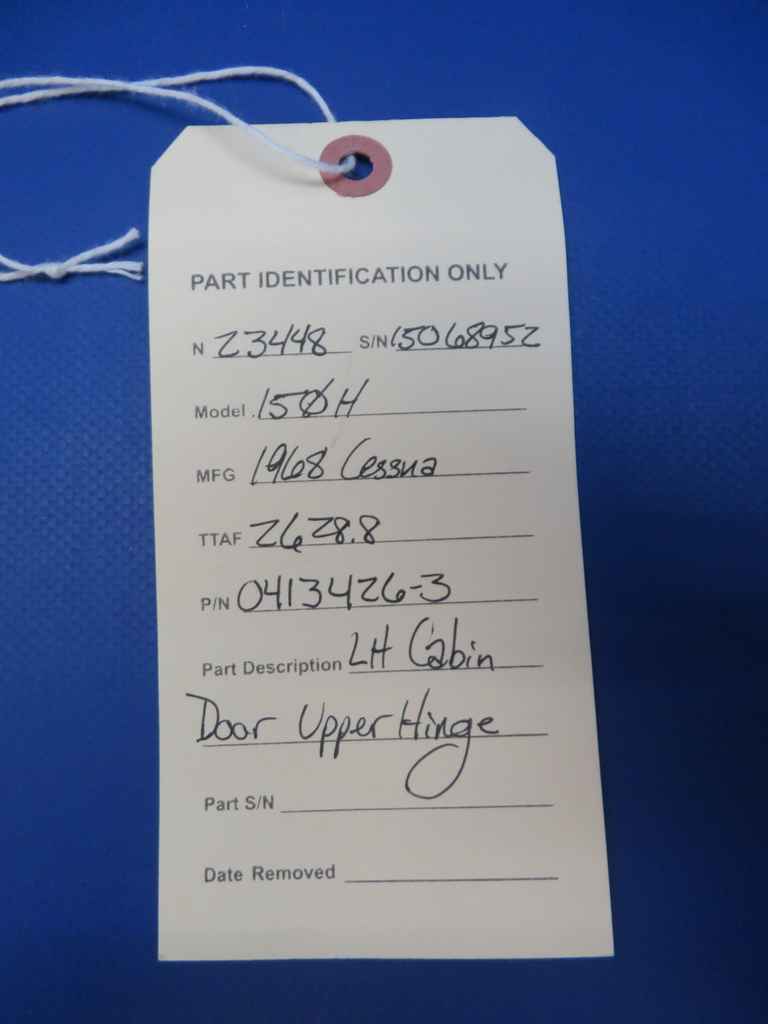 PART IDENTIFICATION ONLY
N 23448 S/N 15068952
Model 150H
MFG 1968 Cessna
TTAF 2628.8
P/N 0413426-3
Part Description LH Cabin
Door Upper Hinge
Part S/N
Date Removed